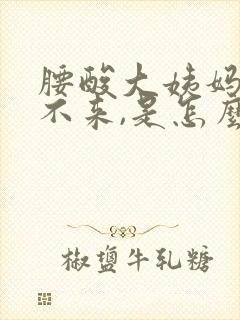 腰酸大姨妈
不来,是怎麽
椒盐牛乳糖